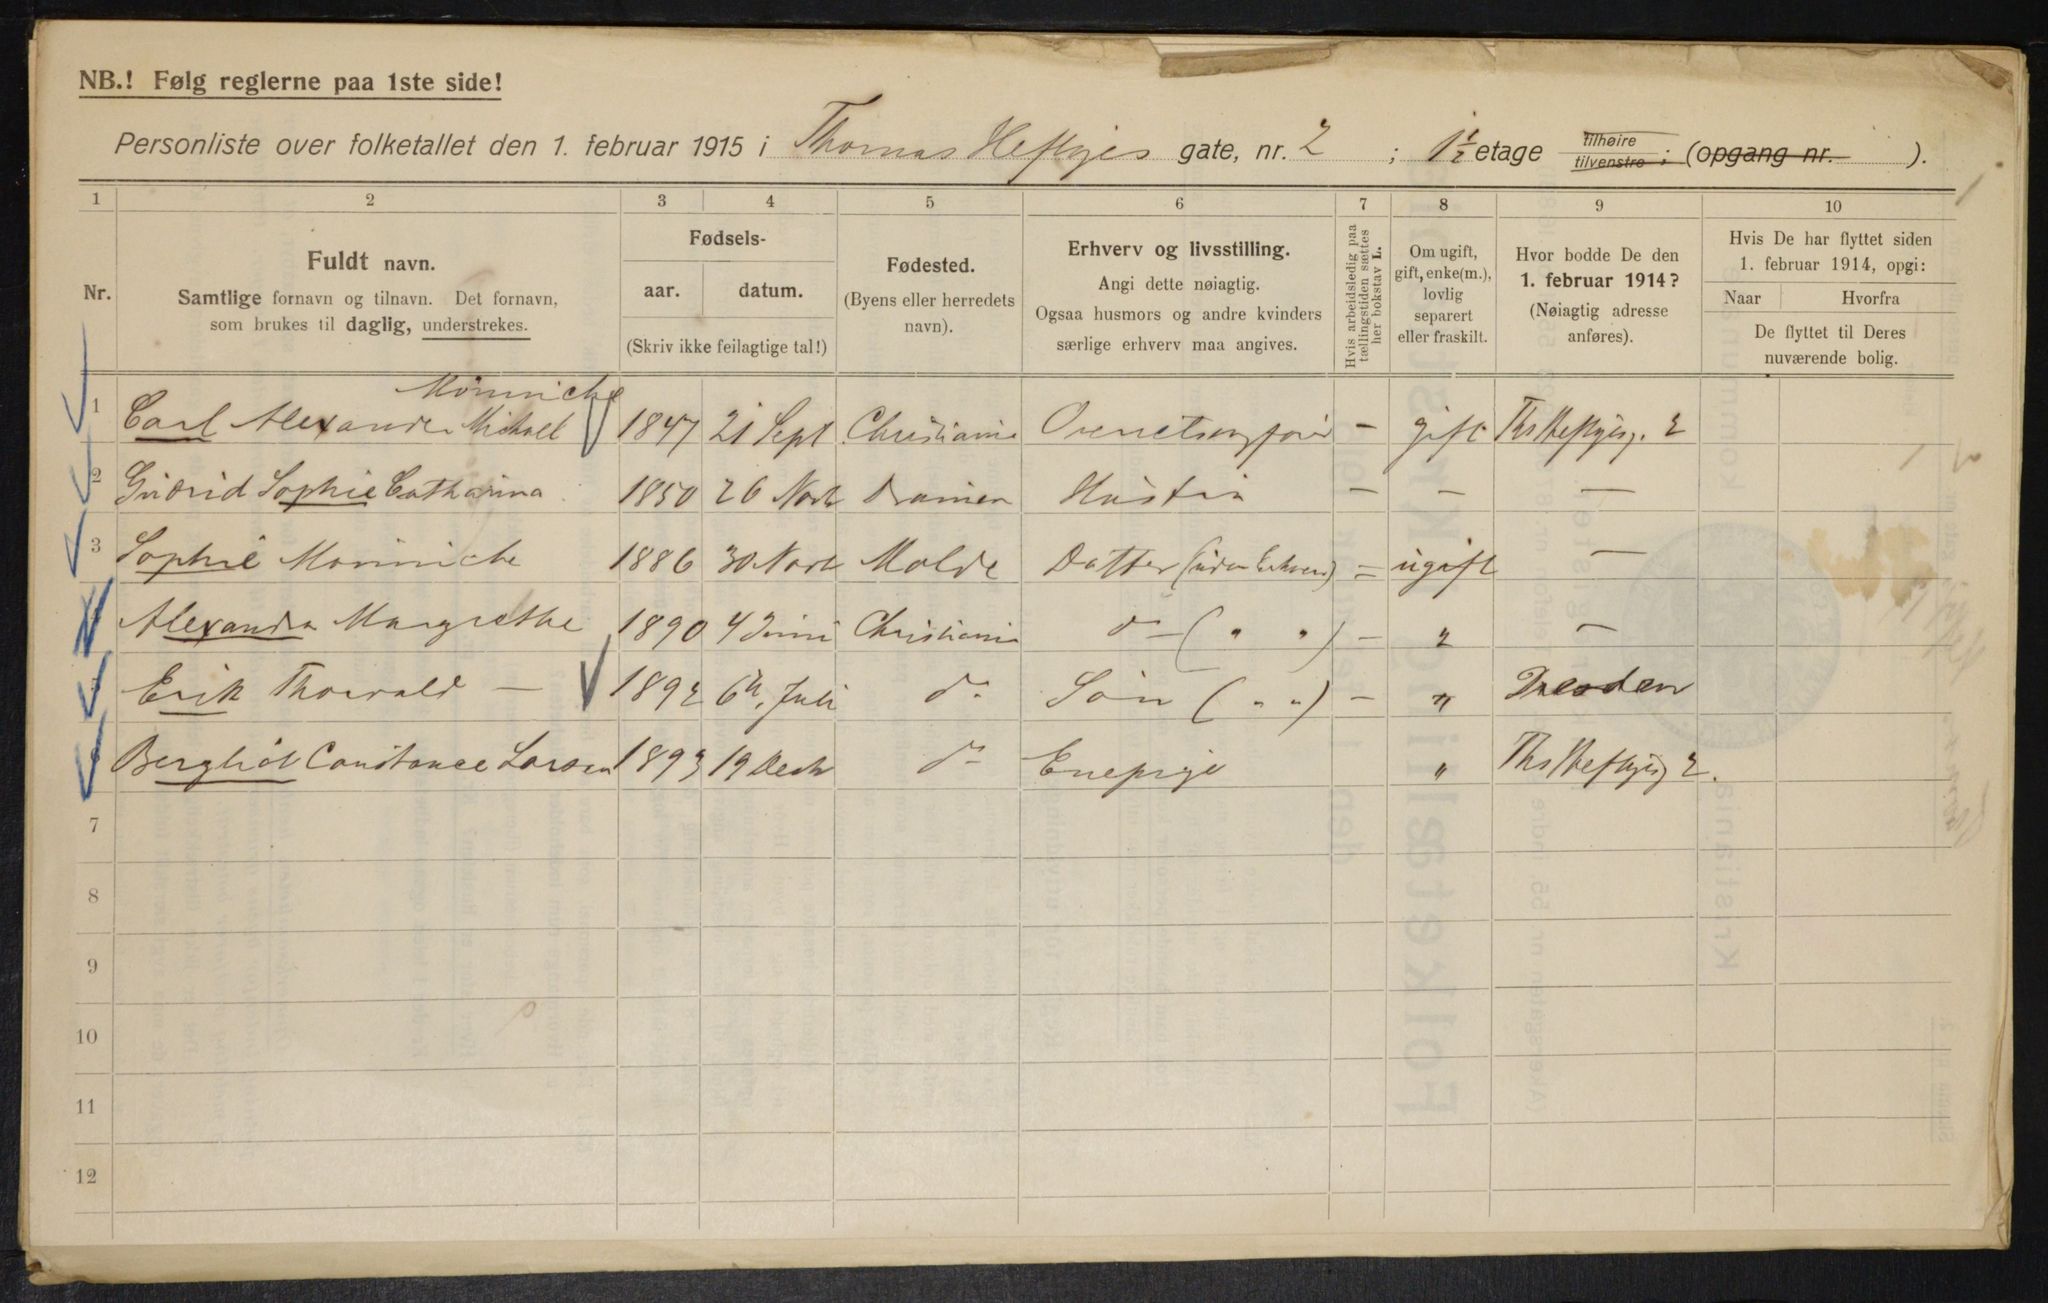 NB.! Følg reglerne paa 1ste side!
Personliste over folketallet den 1. februar 1915 i Thomas Heftyes gate, nr. 2 ; 1½ etage tilhøire tilvenstre ; (opgang nr. ).
1 2 3 4 5 6 7 8 9 10
Nr.
Fuldt navn.
Samtlige fornavn og tilnavn. Det fornavn,
som brukes til daglig, understrekes.
Fødsels-
aar. datum.
(Skriv ikke feilagtige tal!)
Fødested.
(Byens eller herredets
navn).
Erhverv og livsstilling.
Angi dette nøiagtig.
Ogsaa husmors og andre kvinders
særlige erhverv maa angives.
Hvis arbeidsledig paa
tællingstiden sættes
her bokstav L.
Om ugift,
gift, enke(m.),
lovlig
separert
eller fraskilt.
Hvor bodde De den
1. februar 1914?
(Nøiagtig adresse
anføres).
Hvis De har flyttet siden
1. februar 1914, opgi:
Naar Hvorfra
De flyttet til Deres
nuværende bolig.
Monniche
1 Carl Alexander Michael 1847 21 Sept Christiania – gift Ths Heftyesg. 2
2 Gudrid Sophie Catharina 1850 26 Novb Dramen Hustru – – –
3 Sophie Monniche 1886 30 Novb Molde Datter (uden Erhverv) = ugift –
Alexandra Margrethe 1890 4 Juni Christiania do – ( " " ) – " –
Erik Thorvald – 1892 6te Juli do Søn ( " " ) – " Dresden
Bergliot Constance Larsen 1893 19 Decb do Enepige " Ths Heftyesg 2.
7
8
9
10
11
12